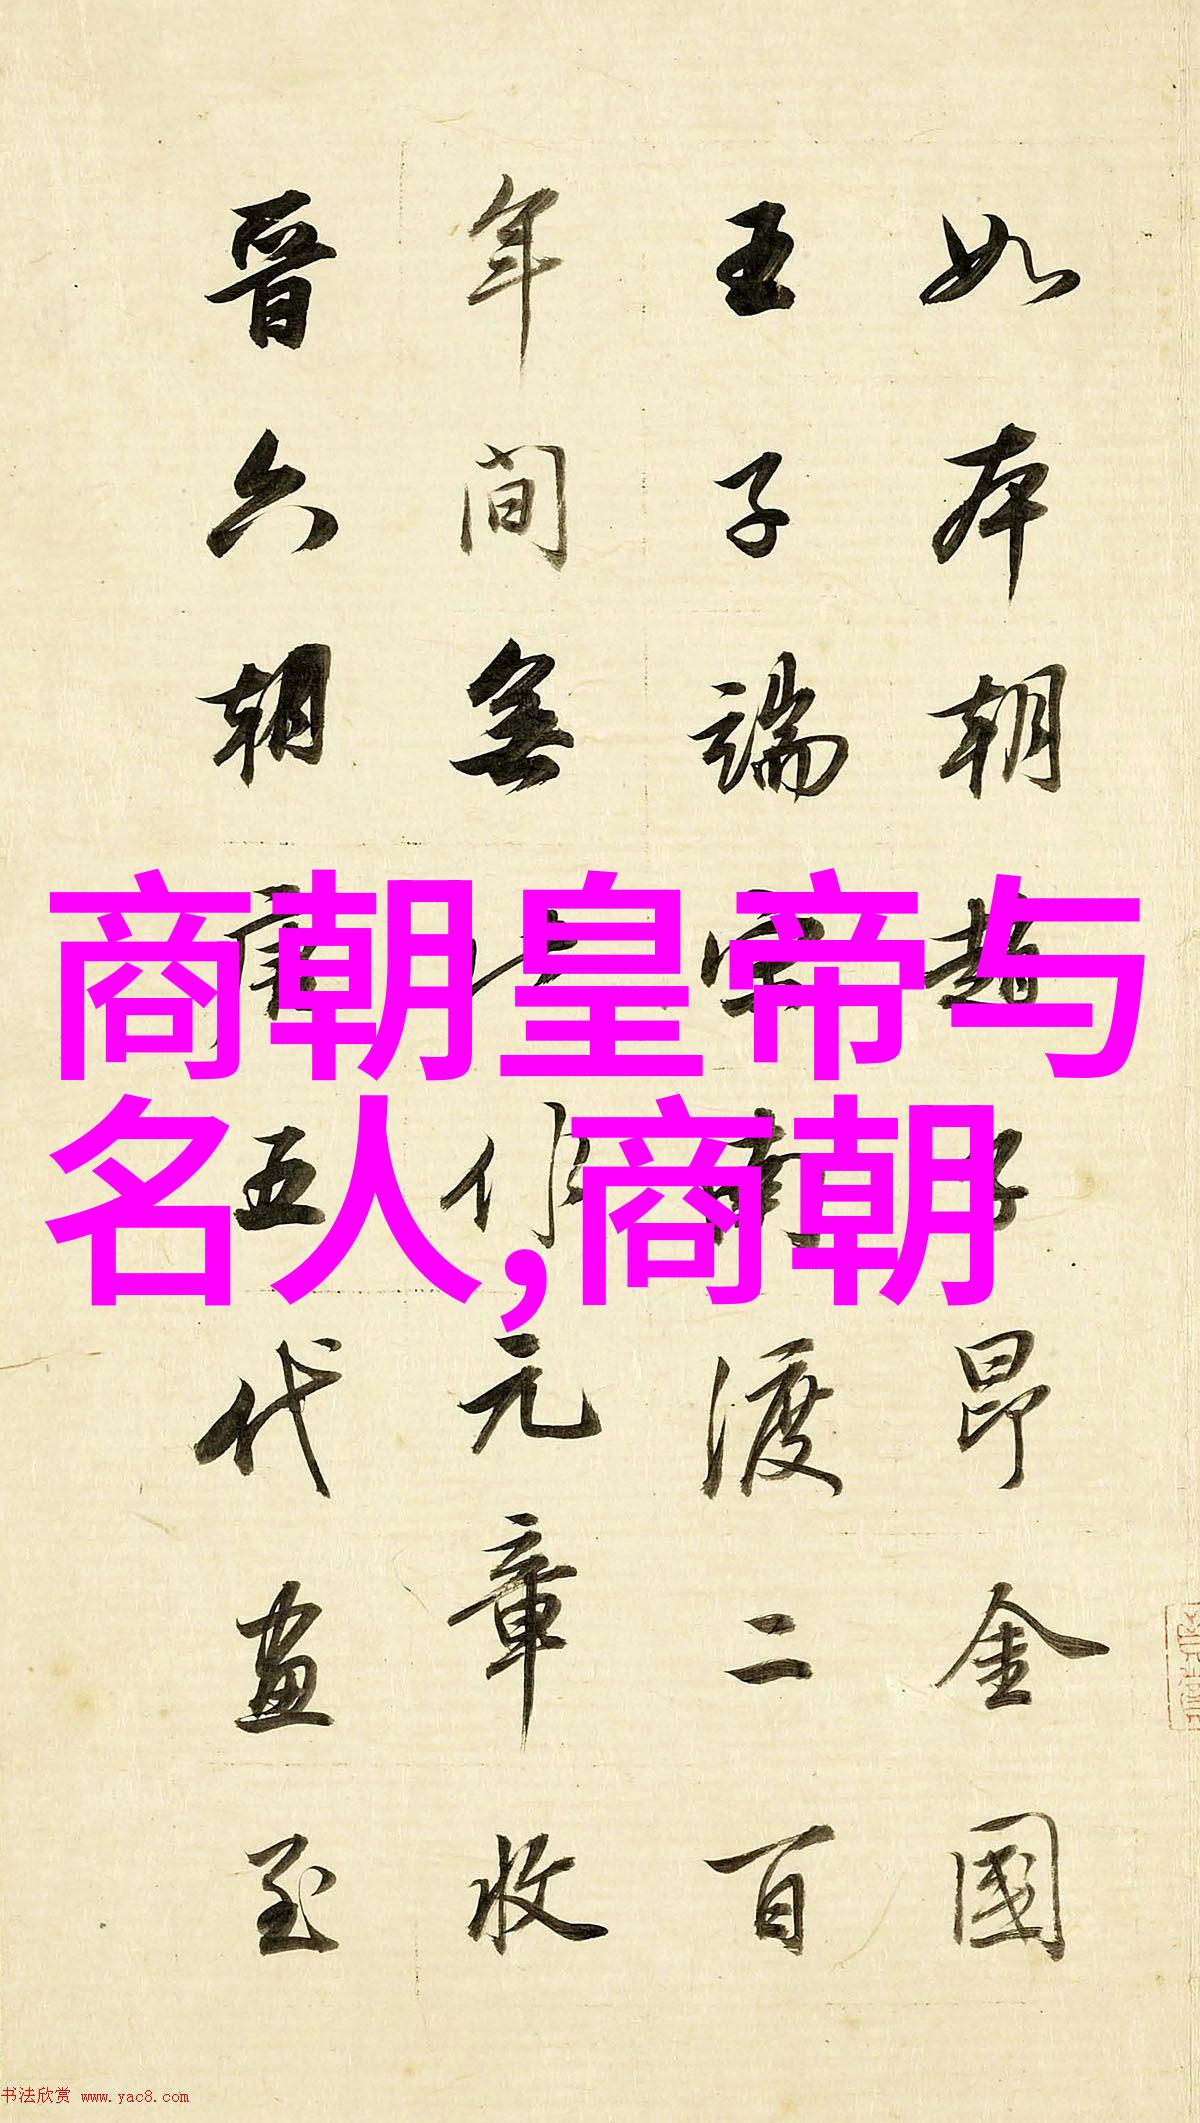 如本朝趙子昂金國
王子端宋南渡二百
年間無此作元章收
晉六朝唐五代畫至
商朝皇帝与
名人,商朝
书法欣赏 www.yac8.com